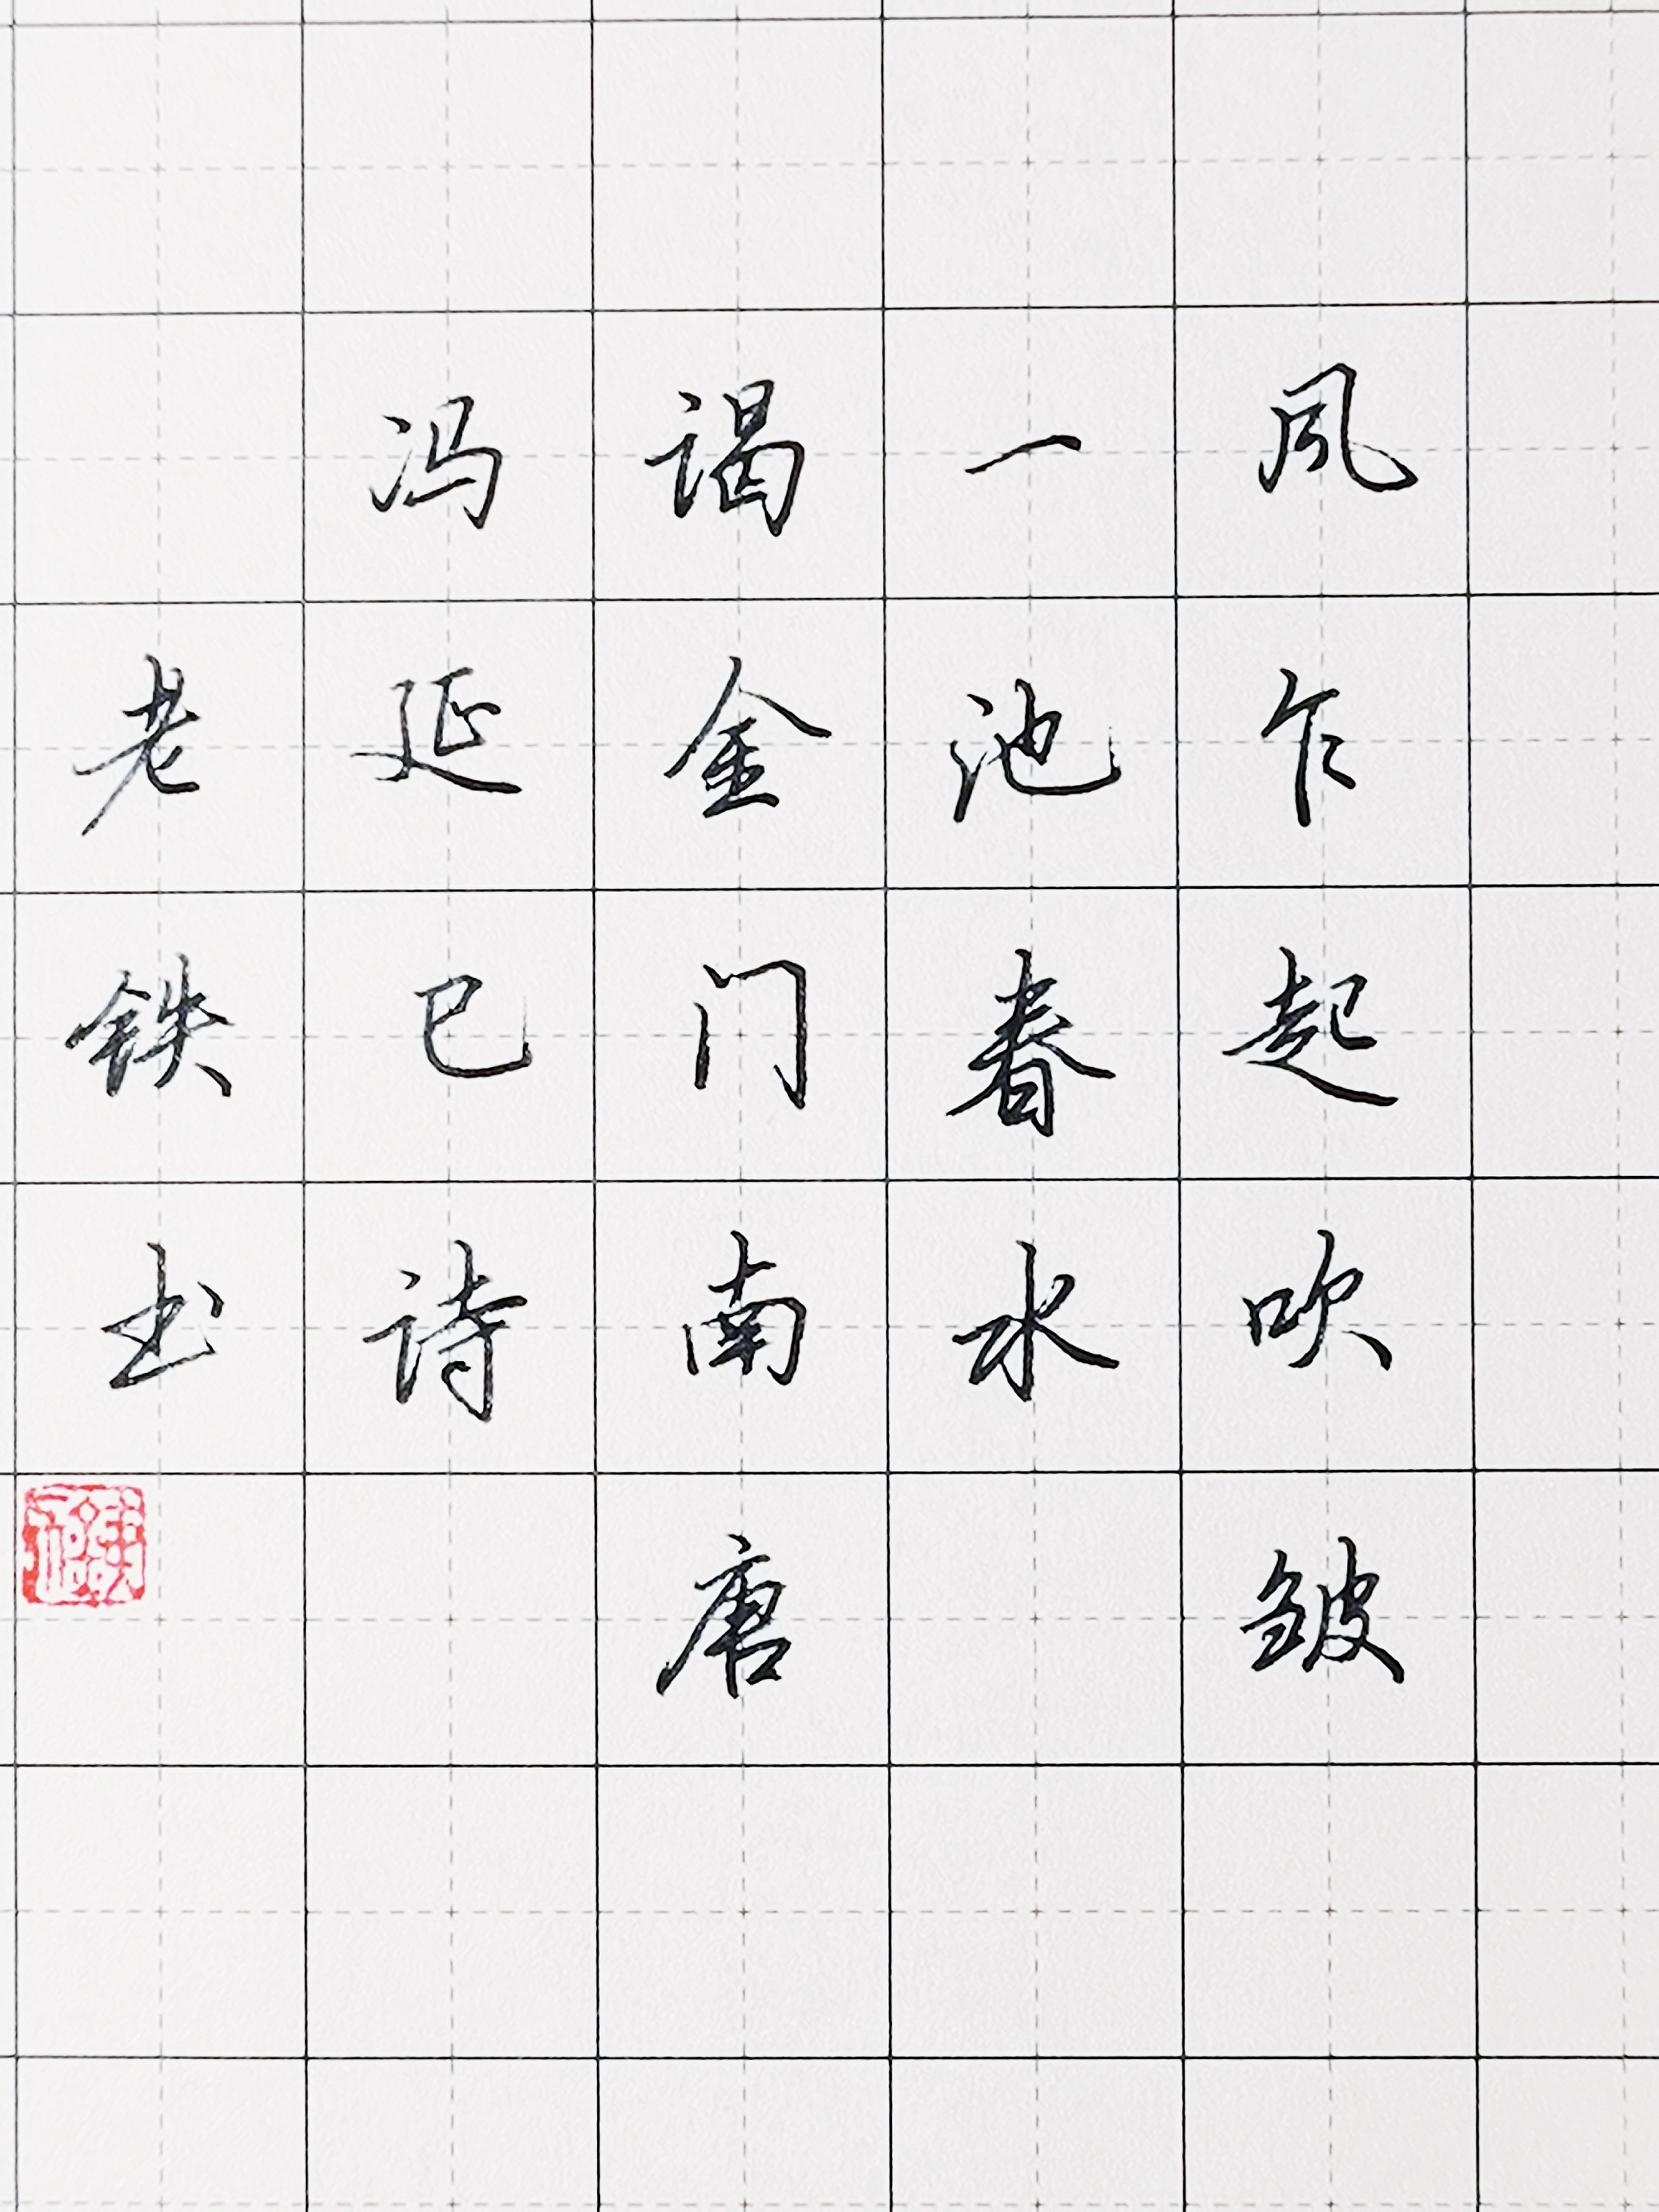 风乍起吹皱
一池春水
谒金门南唐
冯延巳诗
老铁书